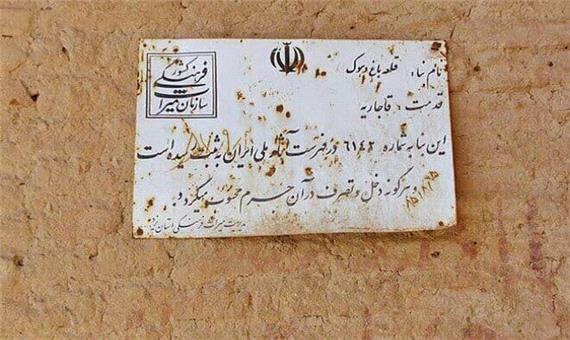 نام بنا، قلعه باغ دهوک
قدمت، قاجاریه
سازمان میراث فرهنگی کشور
این بنا به شماره ۶۱۴۲ در فهرست آثار ملی ایران به ثبت رسیده است
و هرگونه دخل و تصرف در آن جرم محسوب میگردد.
مدیریت میراث فرهنگی استان یزد